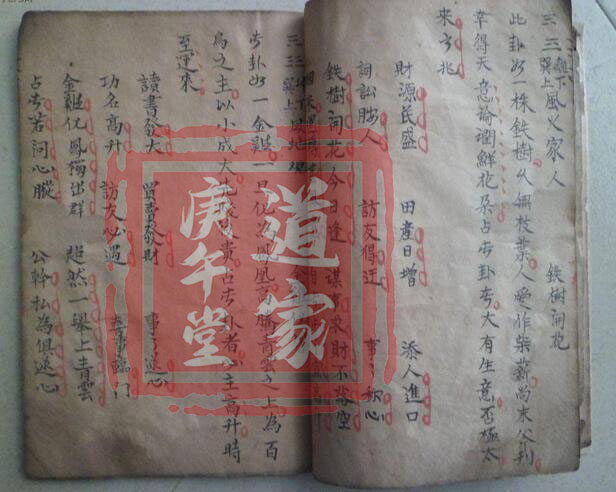 離下
巽上 風火家人 鉄樹開花
此卦如一株鉄樹久無枝葉人愛作柴薪尚未分判
幸得天意渝潤鮮花朵占此卦者大有生意否極太
來之兆
財源民盛 田產日增 添人進口
詞訟勝人 訪友得迂 事事欽心
鉄樹開花今日逢 謀 求財不落空
巽上
此卦如一金雞一旦化為鳳凰高騰青雲之上為百
鳥之主以小成大 貴占此卦者必主高升時
至運來
讀書發大 買賣發財 事事遂心
功名高升 訪友必遇 喜事臨門
金雞化鳳獨出群 超然一舉上青雲
占此若問心腹 公幹私為俱遂心
道家
庚午堂